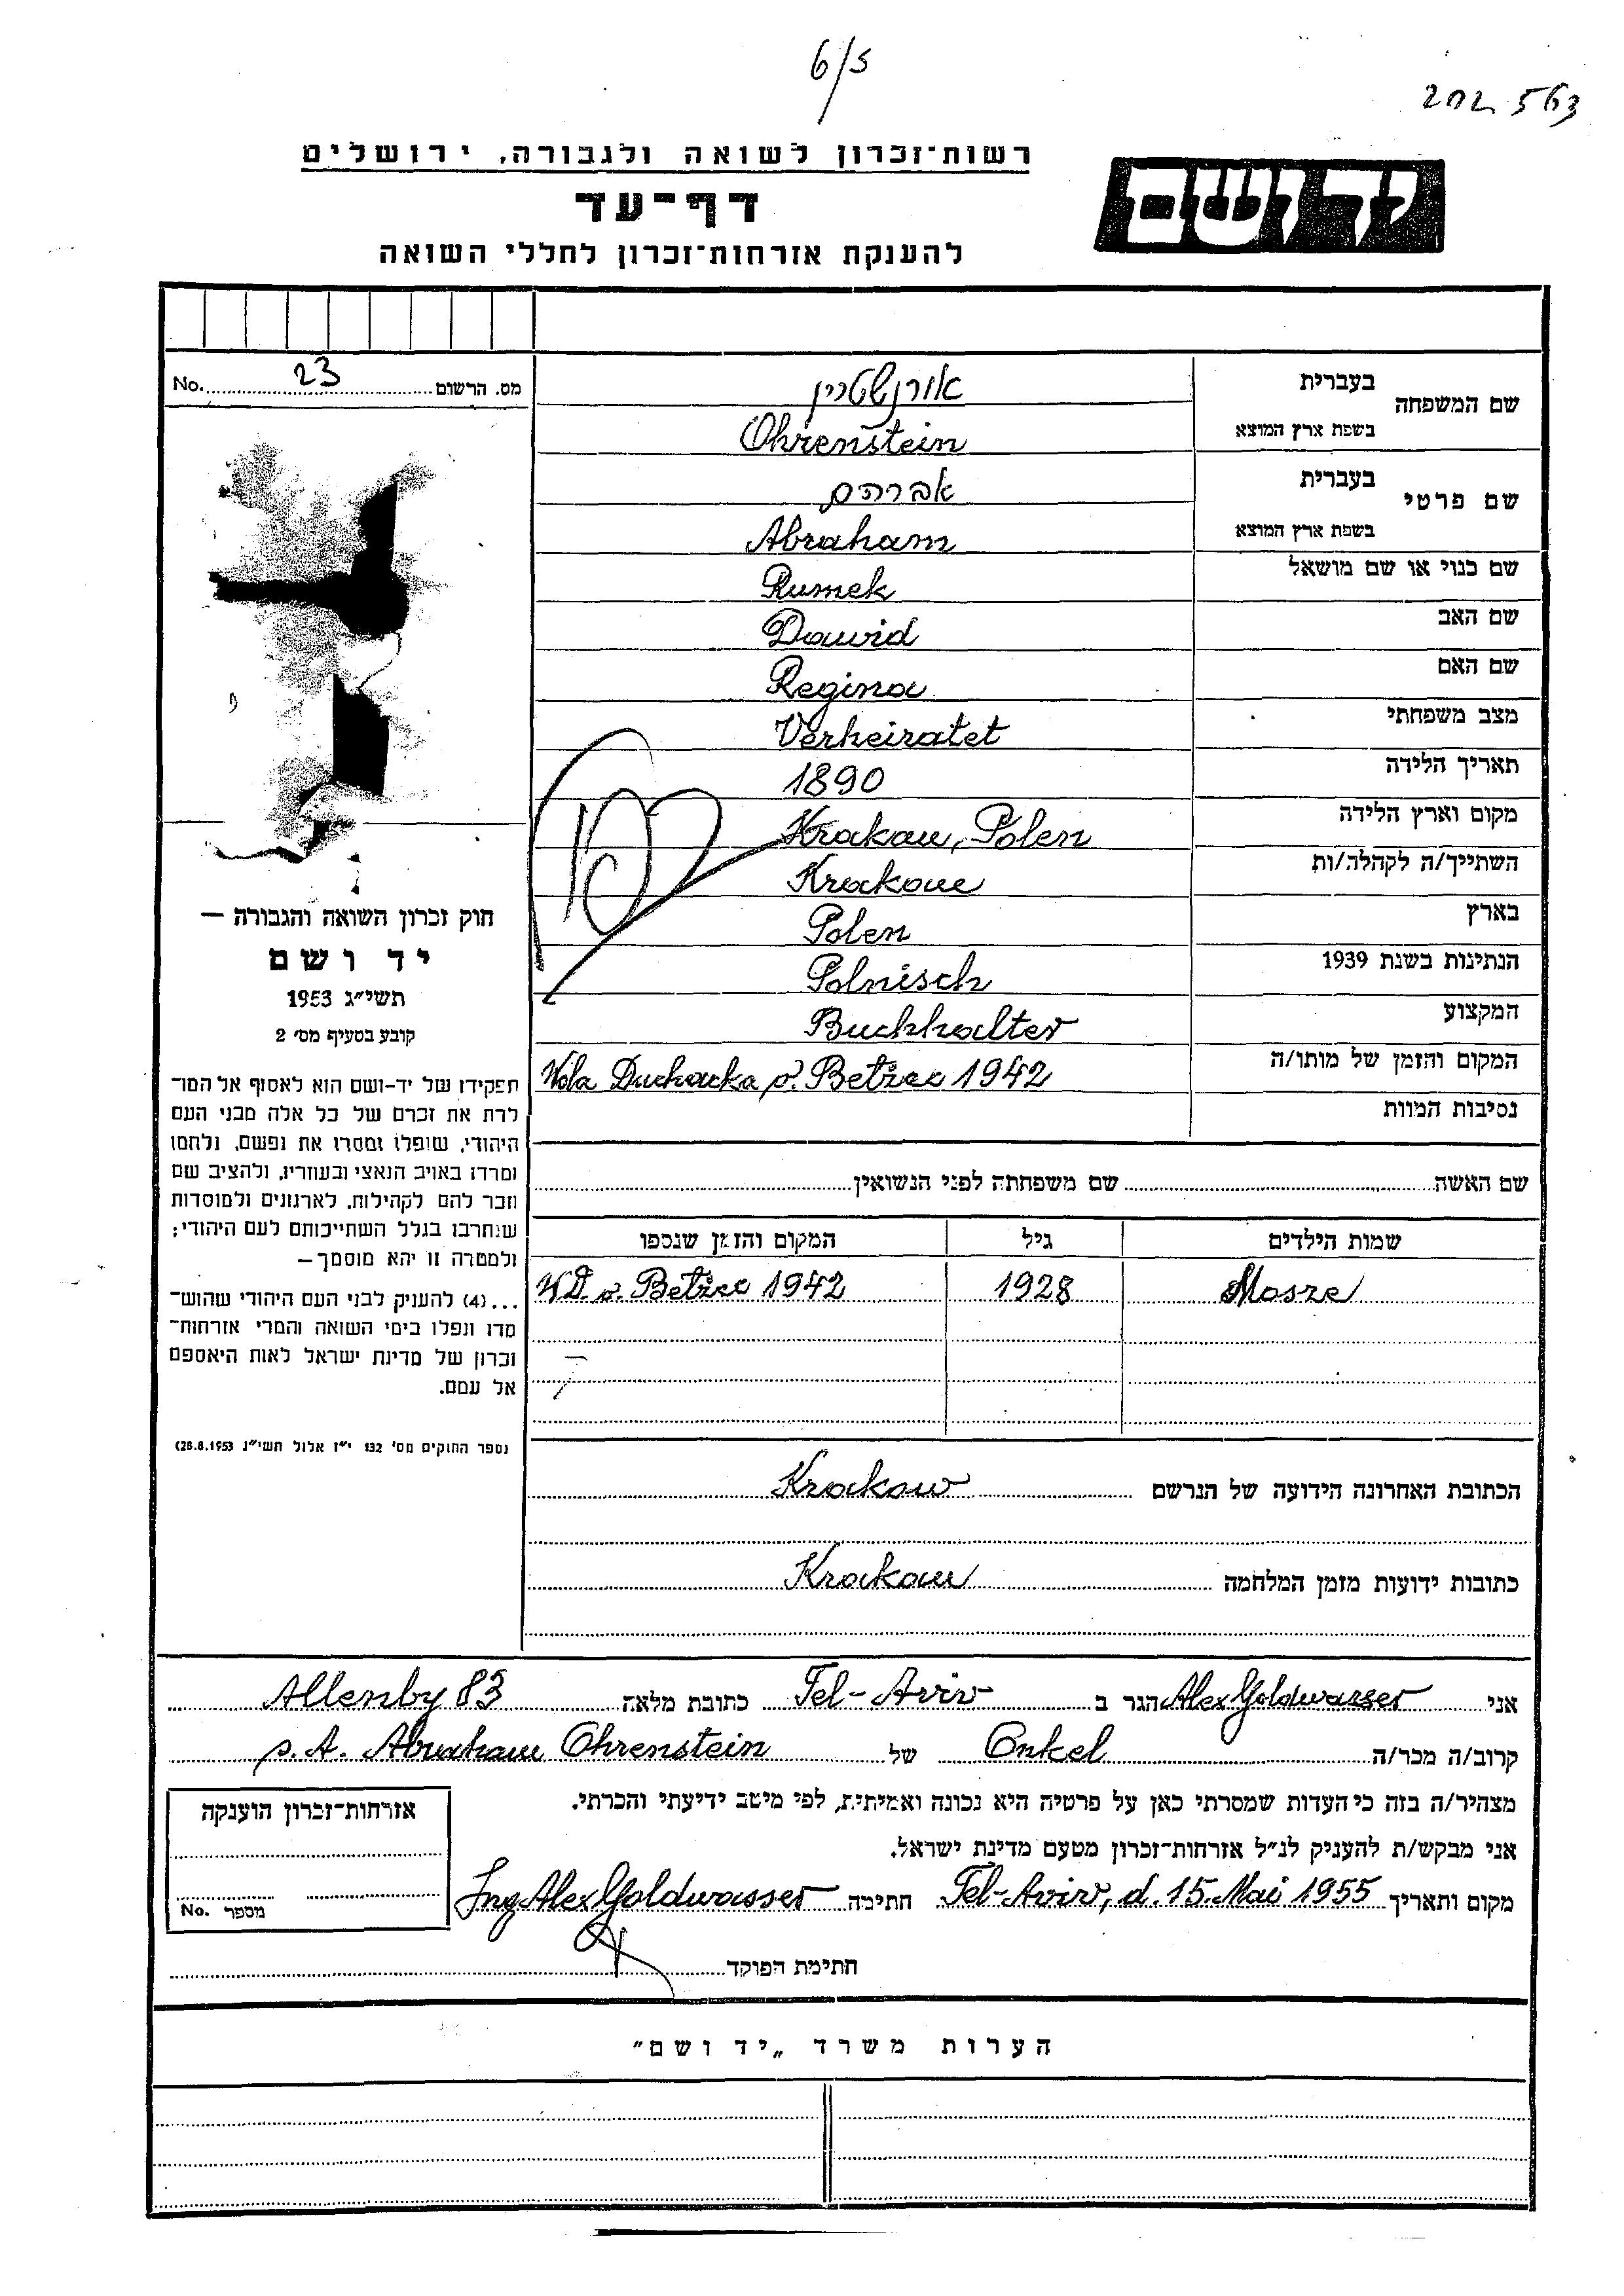 6/5
202 563
רשות־זכרון לשואה ולגבורה, ירושלים
דף־עד
להענקת אזרחות־זכרון לחללי השואה
יד ושם
No. 23 מס. הרשום
שם המשפחה בעברית אורנשטיין
בשפת ארץ המוצא Ohrenstein
שם פרטי בעברית אברהם
בשפת ארץ המוצא Abraham
שם כנוי או שם מושאל Rumek
שם האב Dawid
שם האם Regina
מצב משפחתי Verheiratet
תאריך הלידה 1890
מקום וארץ הלידה Krakau, Polen
השתייך/ה לקהלה/ות Krakau
בארץ Polen
הנתינות בשנת 1939 Polnisch
המקצוע Buchhalter
המקום והזמן של מותו/ה Wola Duchacka o. Betżec 1942
נסיבות המוות
חוק זכרון השואה והגבורה —
יד ושם
תשי״ג 1953
קובע בסעיף מס׳ 2
תפקידו של יד-ושם הוא לאסוף אל המו־
לדת את זכרם של כל אלה מבני העם
היהודי, שנפלו ומסרו את נפשם, נלחמו
ומרדו באויב הנאצי ובעוזריו, ולהציב שם
וזכר להם לקהילות, לארגונים ולמוסדות
שנחרבו בגלל השתייכותם לעם היהודי;
ולמטרה זו יהא מוסמך —
...(4) להעניק לבני העם היהודי שהוש־
מדו ונפלו בימי השואה והמרי אזרחות־
זכרון של מדינת ישראל לאות היאספם
אל עמם.
(ספר החוקים מס׳ 132 י״ז אלול תשי״ג 28.8.1953)
שם האשה שם משפחתה לפני הנשואין
שמות הילדים גיל המקום והזמן שנספו
Mosze 1928 WD o. Betżec 1942
הכתובת האחרונה הידועה של הנרשם Krakow
כתובות ידועות מזמן המלחמה Krakau
אני Alex Goldwasser הגר ב Tel-Aviv כתובת מלאה Allenby 83
קרוב/ה מכר/ה Onkel של p. A. Abraham Ohrenstein
מצהיר/ה בזה כי העדות שמסרתי כאן על פרטיה היא נכונה ואמיתית, לפי מיטב ידיעתי והכרתי.
אני מבקש/ת להעניק לנ״ל אזרחות־זכרון מטעם מדינת ישראל.
מקום ותאריך Tel-Aviv, d. 15. Mai 1955 חתימה Ing Alex Goldwasser
חתימת הפוקד
אזרחות־זכרון הוענקה
No. מספר
הערות משרד „יד ושם״